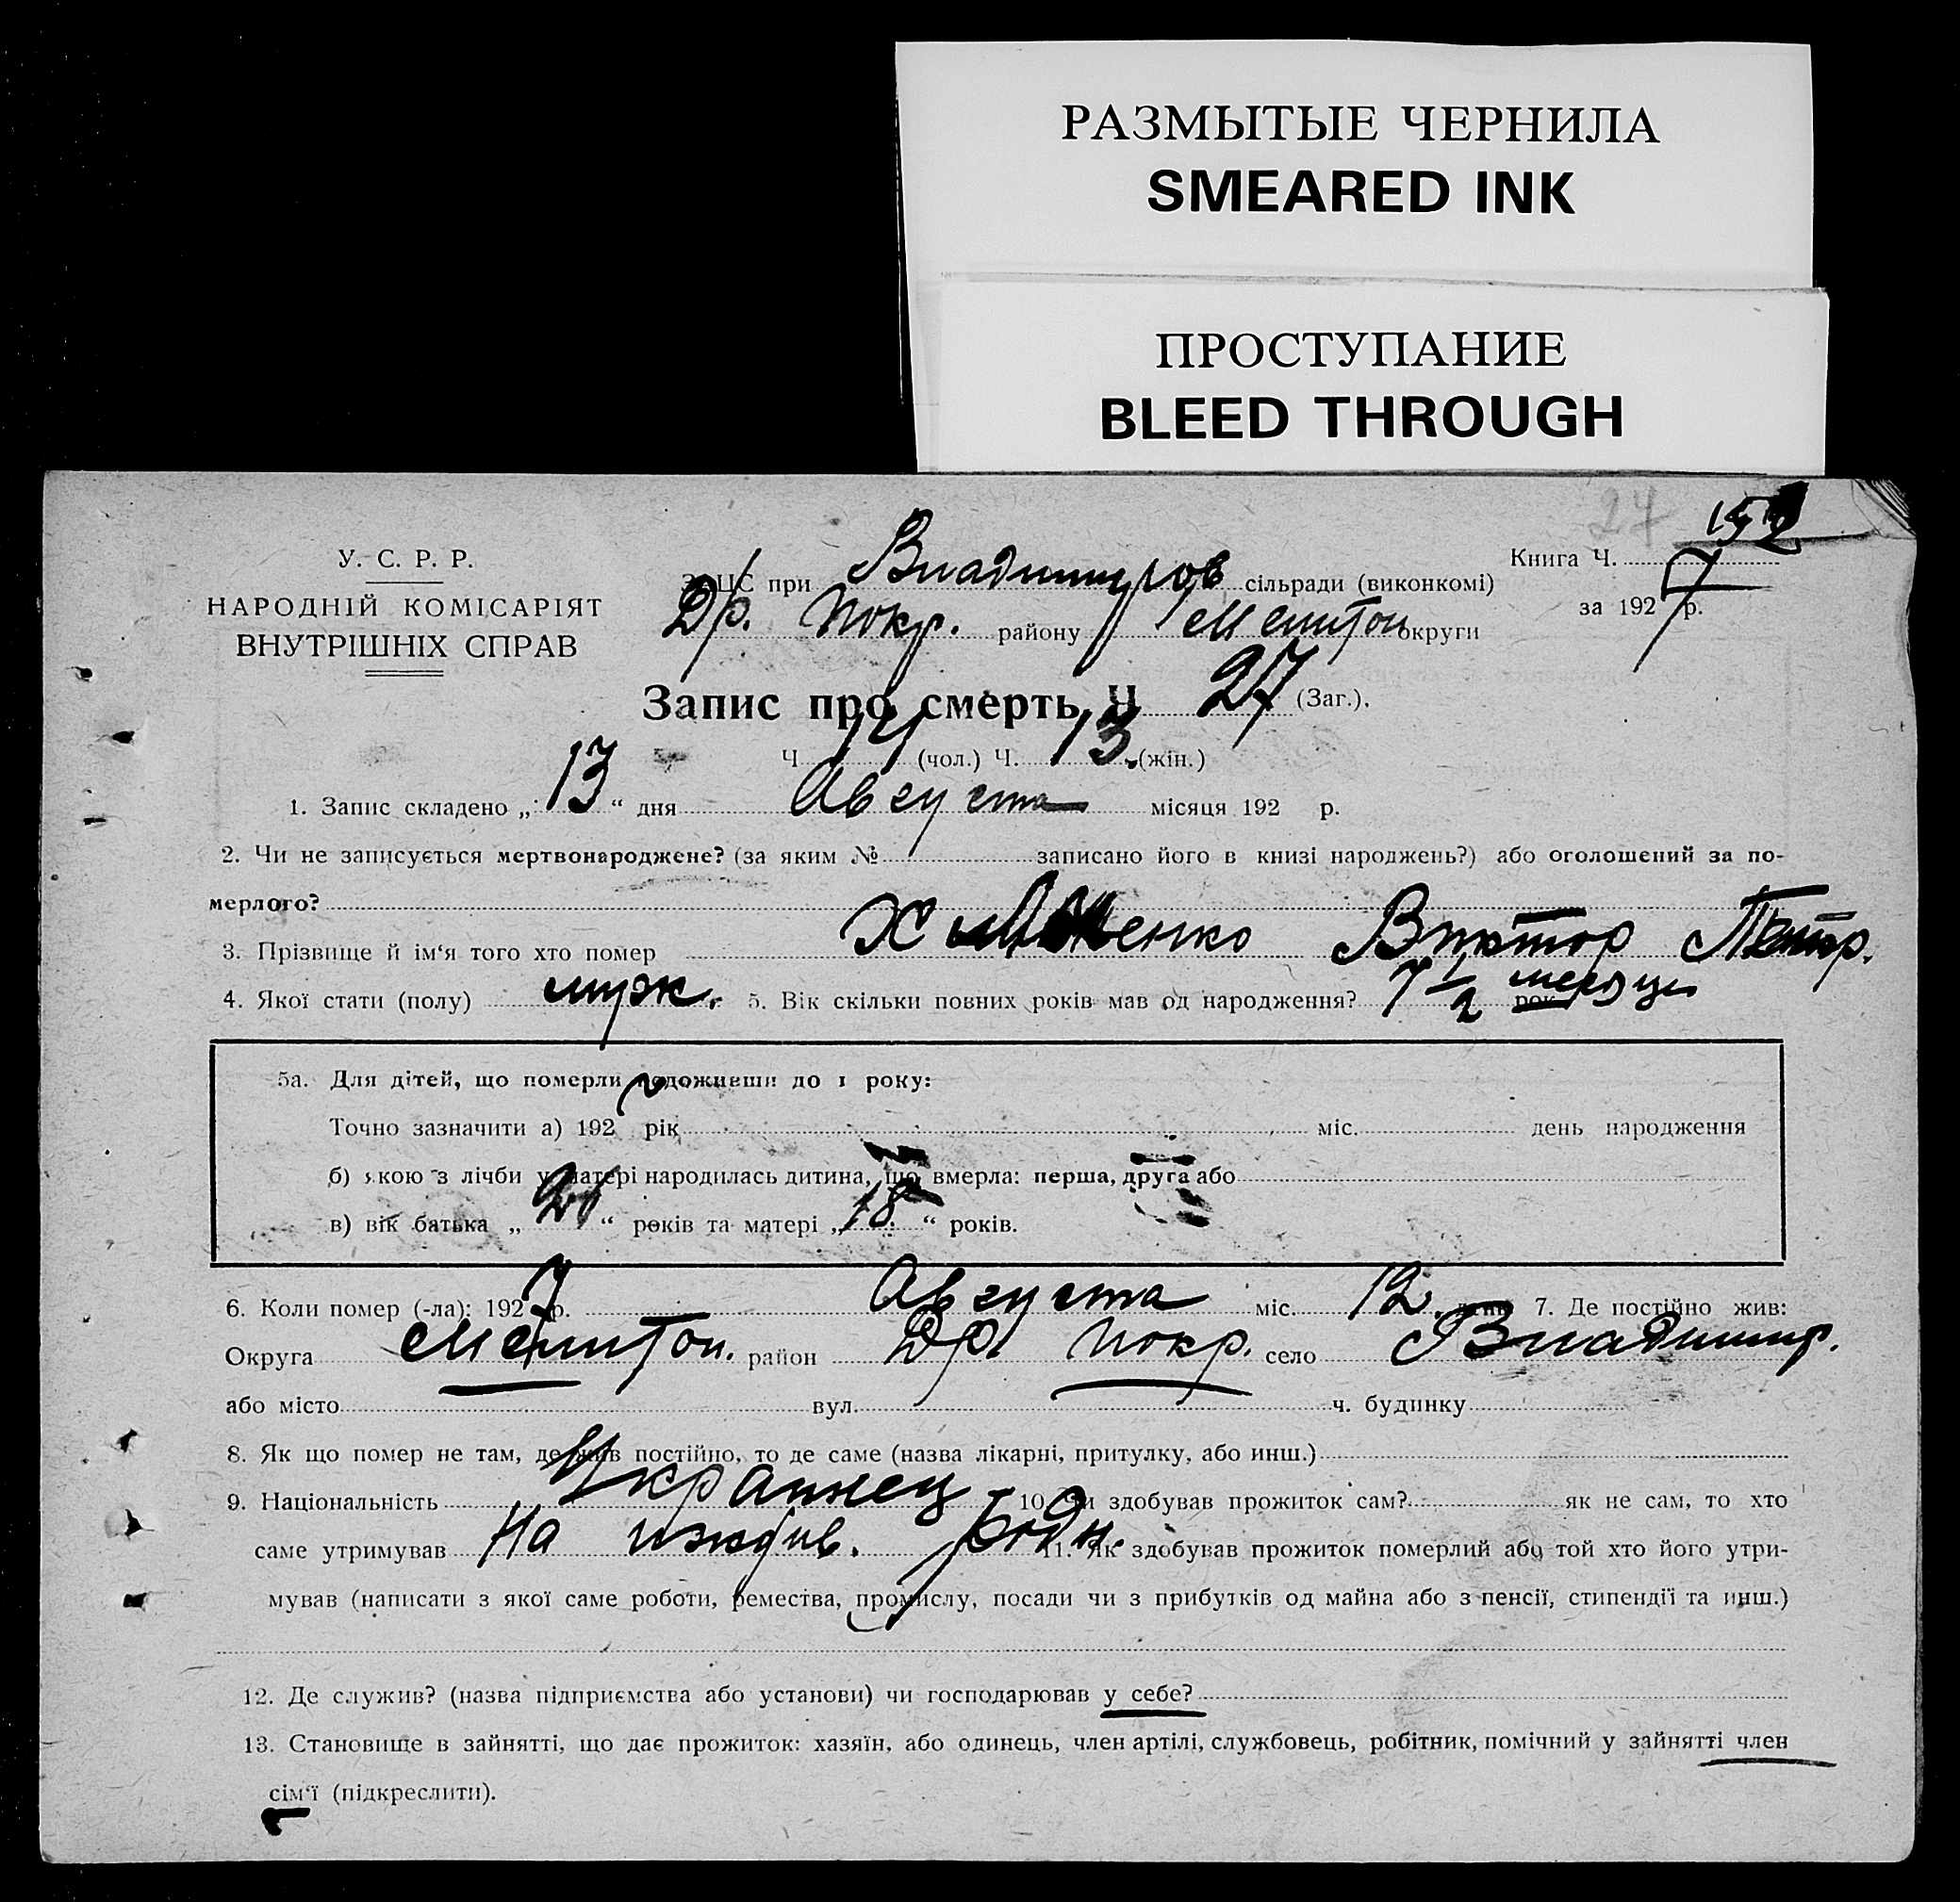 РАЗМЫТЫЕ ЧЕРНИЛА
SMEARED INK
ПРОСТУПАНИЕ
BLEED THROUGH
27 152
У. С. Р. Р.
НАРОДНІЙ КОМІСАРІЯТ
ВНУТРІШНІХ СПРАВ
ЗАЦС при Владимиров сільради (виконкомі)
Др. Покр. району Мелитоп округи
Книга Ч.
за 1927 р.
Запис про смерть Ч 27 (Заг.).
Ч 14 (чол.) Ч. 13 (жін.)
1. Запис складено „ 13 “ дня Августа місяця 192 р.
2. Чи не записується мертвонароджене? (за яким № записано його в книзі народжень?) або оголошений за по-
мерлого?
3. Прізвище й ім‘я того хто помер Виктор Петр.
4. Якої стати (полу) муж. 5. Вік скільки повних років мав од народження? 7 1/2 месяцы
5а. Для дітей, що померли недоживши до 1 року:
Точно зазначити а) 192 рік міс. день народження
б) якою з лічби у матері народилась дитина, що вмерла: перша, друга або
в) вік батька „ 20 “ років та матері „ 18 “ років.
6. Коли помер (-ла): 1927 р. Августа міс. 12. день 7. Де постійно жив:
Округа Мелитоп. район Др. Покр. село Владимир.
або місто вул. ч. будинку
8. Як що помер не там, де жив постійно, то де саме (назва лікарні, притулку, або инш.)
9. Національність Украинец 10. Чи здобував прожиток сам? як не сам, то хто
саме утримував На иждив. родн. 11. Як здобував прожиток померлий або той хто його утри-
мував (написати з якої саме роботи, ремества, промислу, посади чи з прибутків од майна або з пенсії, стипендії та инш.)
12. Де служив? (назва підприємства або установи) чи господарював у себе?
13. Становище в зайнятті, що дає прожиток: хазяїн, або одинець, член артілі, службовець, робітник, помічний у зайнятті член
сім‘ї (підкреслити).